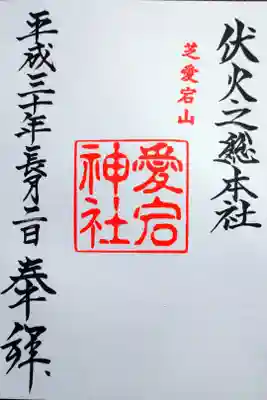 伏火之總本社
芝愛宕山
愛宕
神社
平成三十年長月二日
奉拝